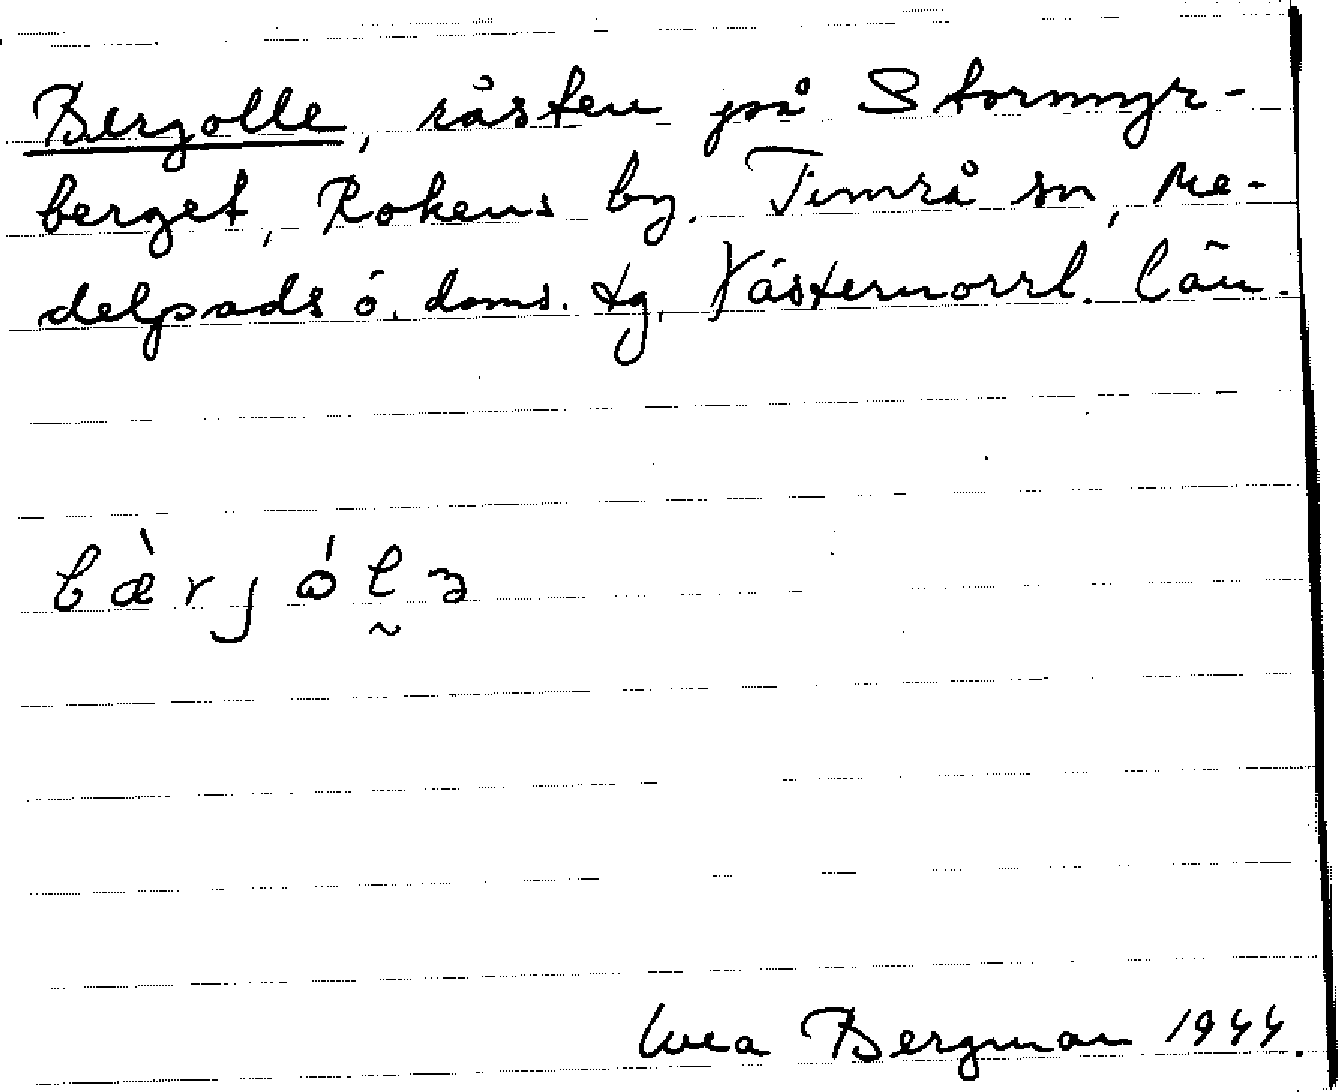 Bergolle, råsten på Stormyr-
berget, Rokens by. Timrå sn, Me-
delpads ö. doms. tg, Västernorrl. län.
bæ̀rjól̰ɜ
Bergman 1944.